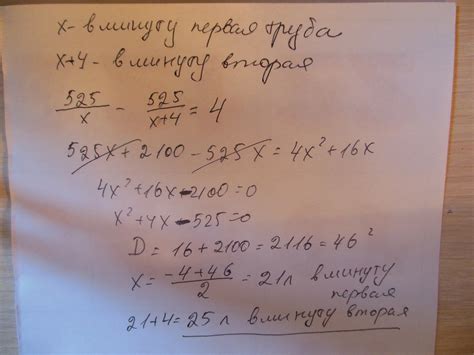 x- в минуту первая труба
x+4 - в минуту вторая
525/x - 525/(x+4) = 4
525x + 2100 - 525x = 4x² + 16x
4x² + 16x - 2100 = 0
x² + 4x - 525 = 0
D = 16 + 2100 = 2116 = 46²
x = (-4+46)/2 = 21л в минуту первая
21+4 = 25 л в минуту вторая